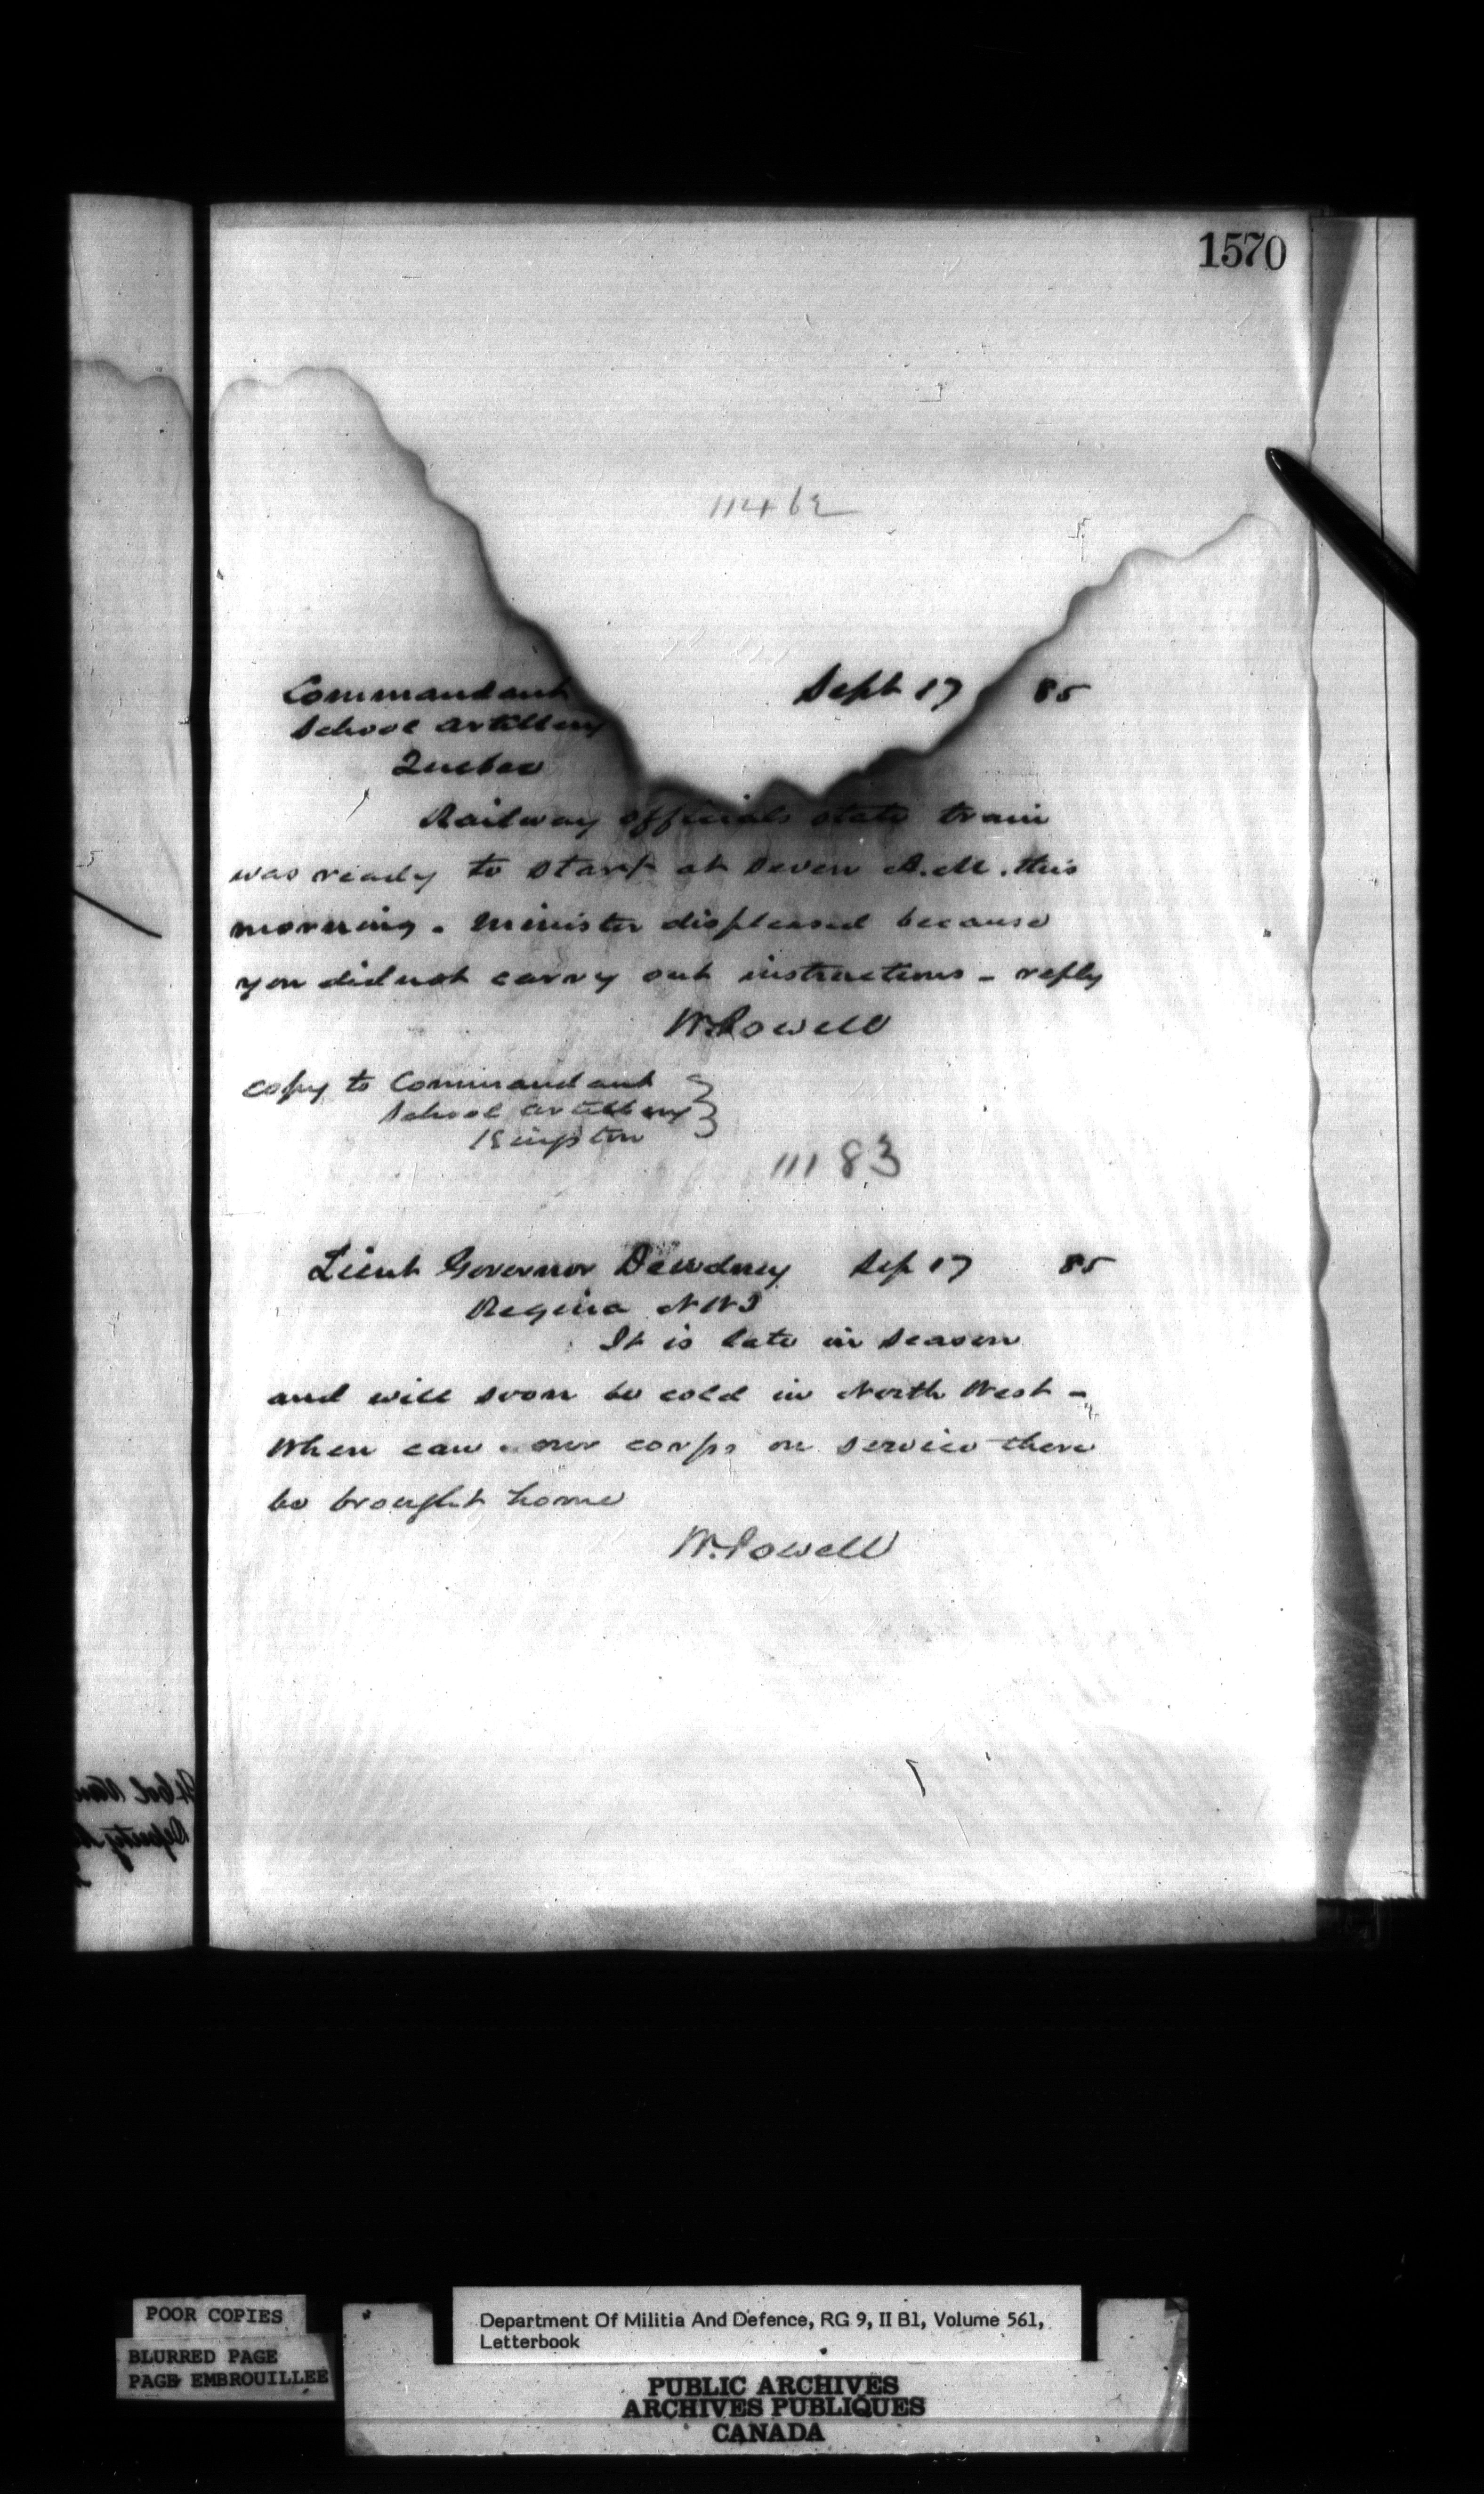 1570
11462
Commandant Sept 17 85
School Artillery
Quebec
Railway officials state train
was ready to start at seven A.M. this
morning. Minister displeased because
you did not carry out instructions - reply
W. Powell
copy to Commandant
School Artillery
Kingston
11183
Lieut Governor Dewdney Sep 17 85
Regina NWT
It is late in season
and will soon be cold in North West -
When can our corps on service there
be brought home
W. Powell
POOR COPIES
BLURRED PAGE
PAGE EMBROUILLEE
Department Of Militia And Defence, RG 9, II B1, Volume 561,
Letterbook
PUBLIC ARCHIVES
ARCHIVES PUBLIQUES
CANADA